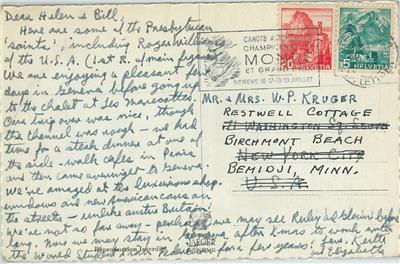 Dear Helen & Bill,
Here are some of the Presbyterian
'saints', including Roger Williams
of the U.S.A. (1st R. of main figures)
We are enjoying a pleasant few
days in Geneva before going up
to the chalet at Les Marecottes.
Our trip over was nice, though
the Channel was rough - we had
time for a steak dinner at one of
the side-walk cafes in Paris
and then came overnight to Geneva.
We're amazed at the luxurious shop
windows and new American cars on
the streets - unlike austere Britain.
We're not so far away - perhaps we may see Ruby and Glenn before
long. Now we may stay in Geneva after Xmas to work with
the World Student Christ. Federation for a few years. Love, Keith
and Elizabeth
CANOTS AUTOMOBILES
CHAMPIONNAT
ET GRAND
GENÈVE 16-17-18-19 JUILLET
20
HELVETIA
5
HELVETIA
Mr. & Mrs. W.P. Kruger
Restwell Cottage
71 Washington Sq. South
Birchmont Beach
New York City
Bemidji, Minn.
U.S.A
JAEGER
GENÈVE
Reproduction interdite